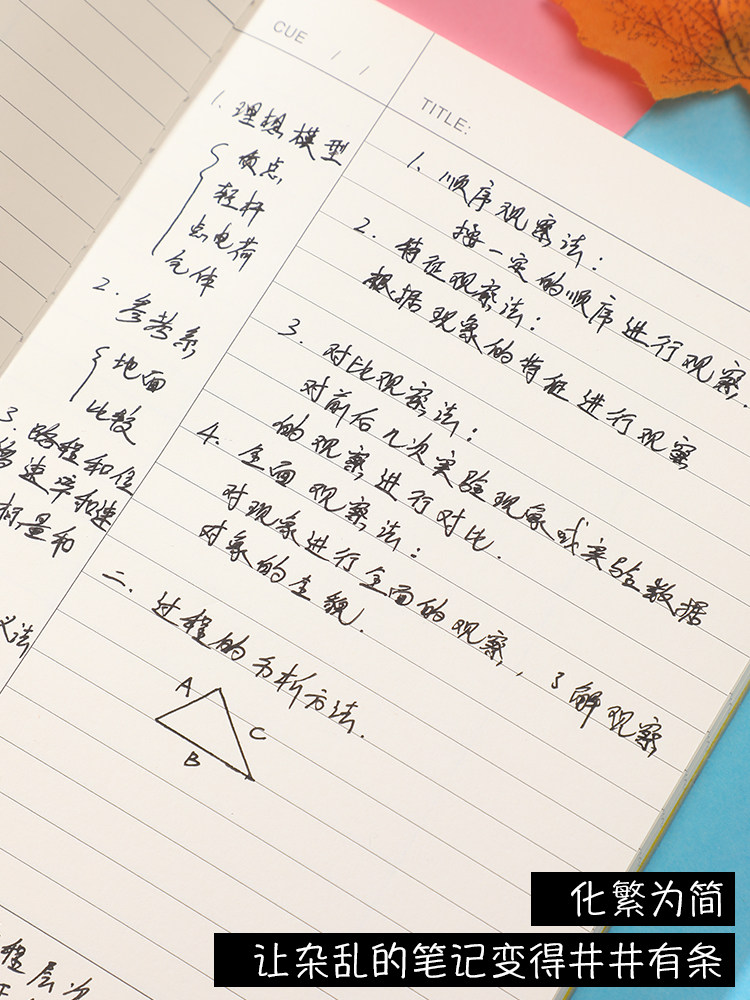 CUE / /
1. 理想模型
质点
轻杆
点电荷
气体
2. 参考系
地面
比较
3. 路程和位
速率和速
标量和
义法
程层次
TITLE:
1. 顺序观察法：
按一定的顺序进行观察.
2. 特征观察法：
根据现象的特征进行观察
3. 对比观察法：
对前后几次实验现象或实验数据
的观察进行对比.
4. 全面观察法：
对现象进行全面的观察，了解观察
对象的全貌.
二、过程的分析方法.
A
C
B
化繁为简
让杂乱的笔记变得井井有条